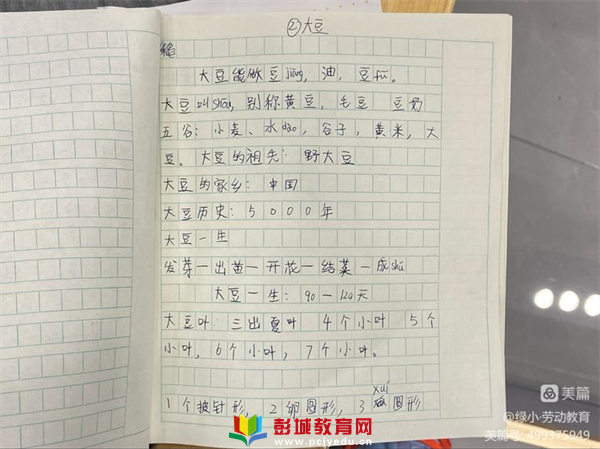 ② 大豆
大豆能做豆jiàng，油，豆fu。
大豆叫shou，别称黄豆，毛豆 豆奶
五谷：小麦、水dao，谷子，黄米，大
豆。大豆的祖先：野大豆
大豆的家乡：中国
大豆历史：5000年
大豆一生
发芽—出苗—开花—结荚—成shú
大豆一生：90—120天
大豆叶：三出复叶 4个小叶 5个
小叶，6个小叶，7个小叶。
xuí
1个披针形，2卵圆形，3 圆形
彭城教育网
www.pcjyedu.cn
美篇
@绿小·劳动教育
美篇号 499375949